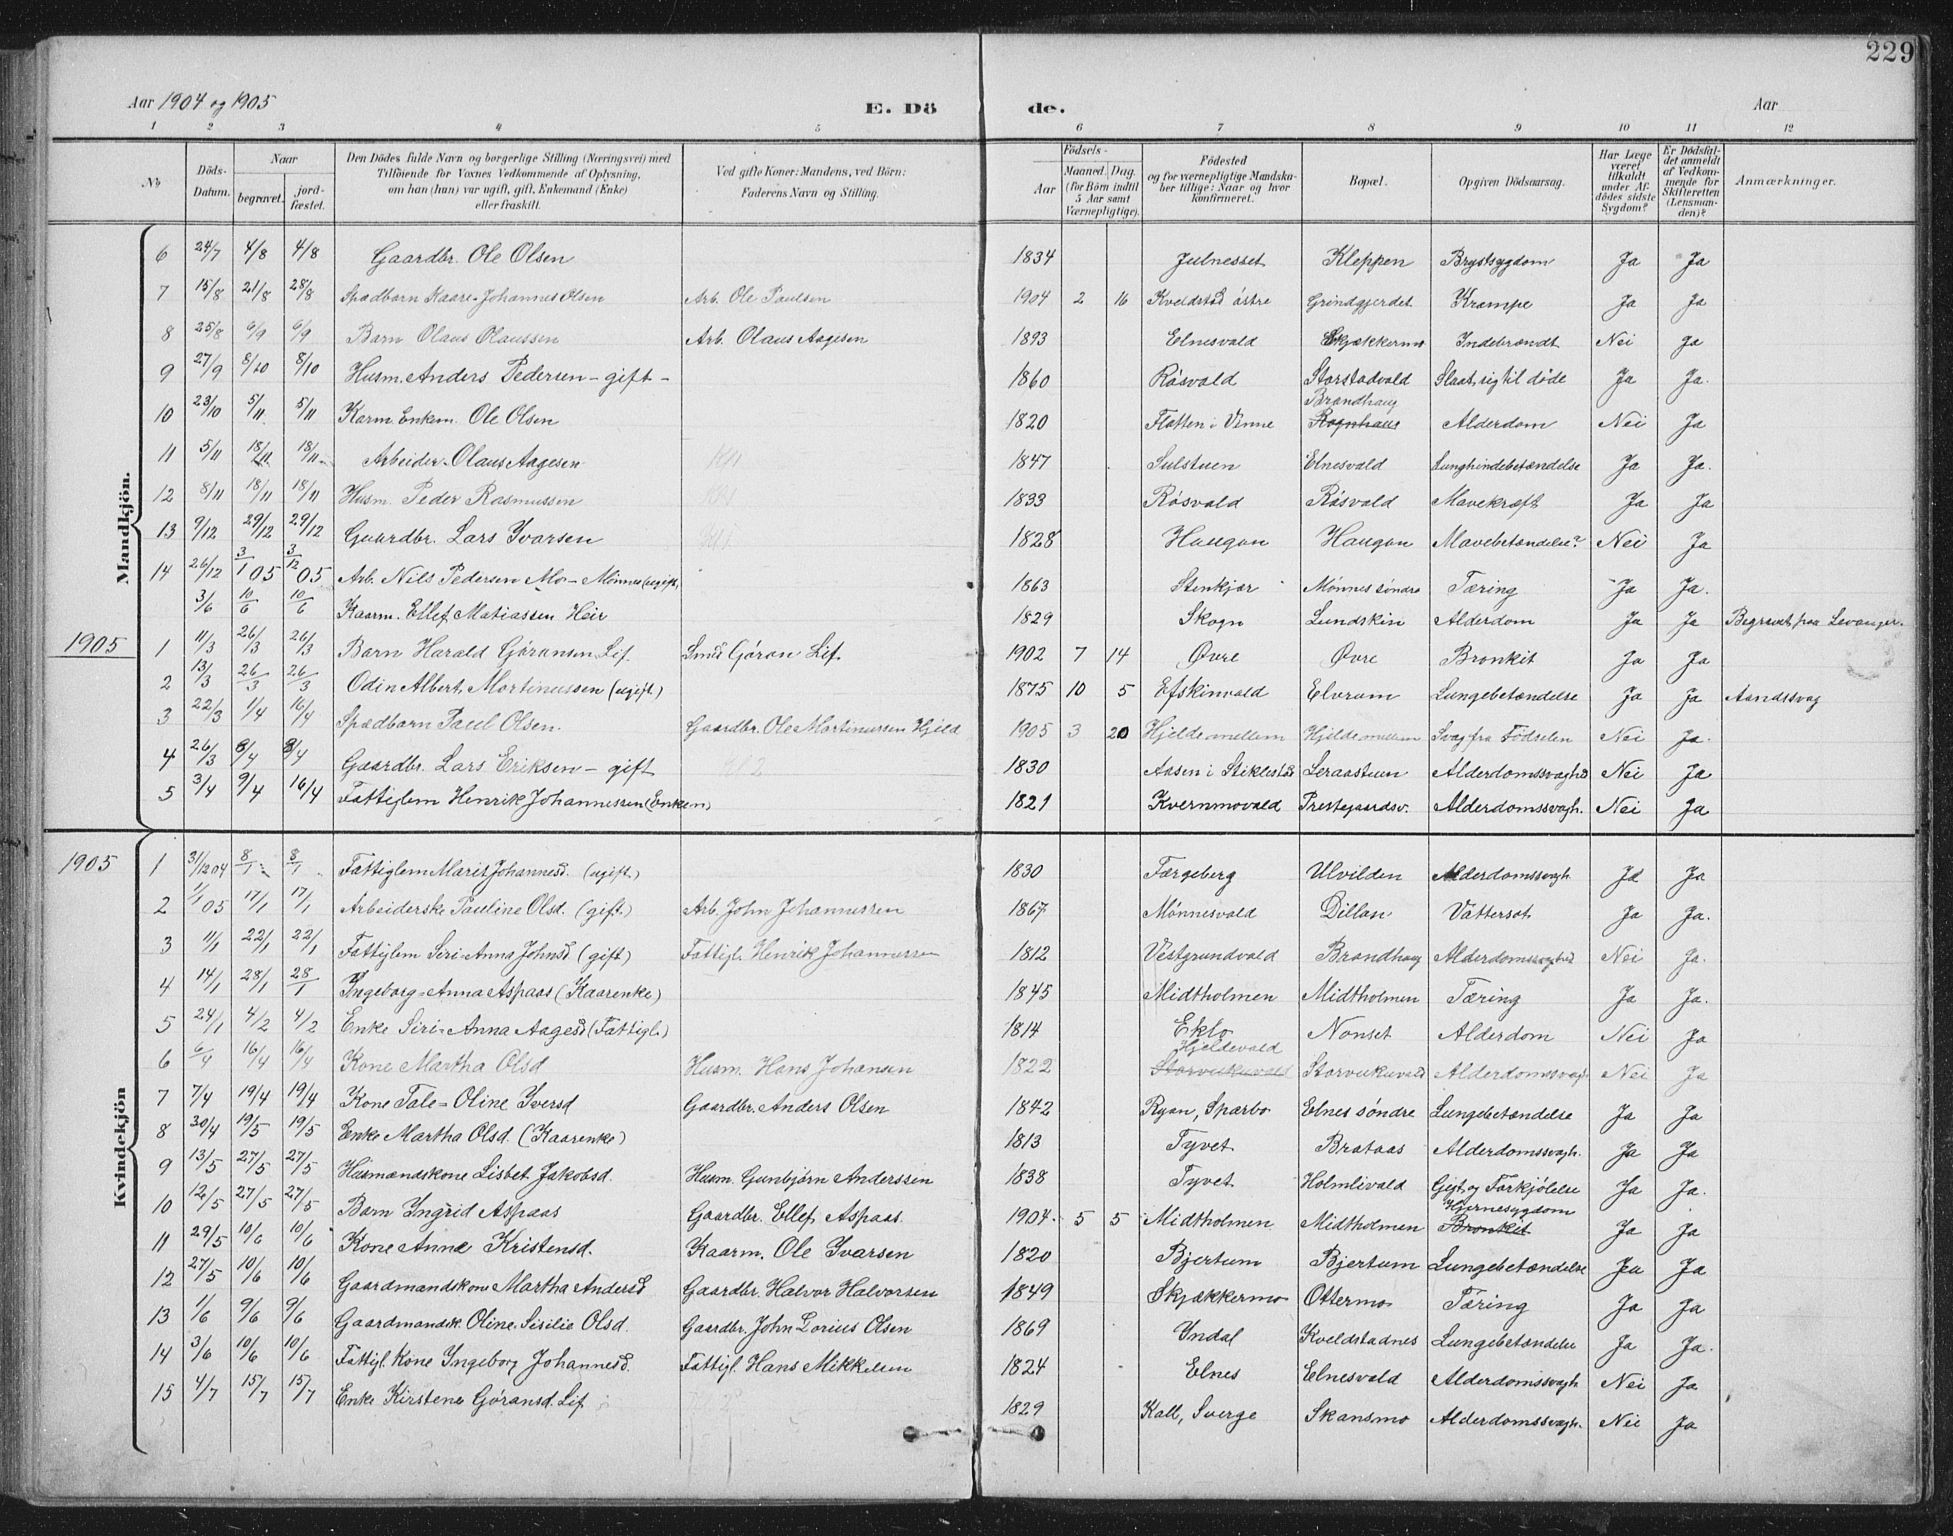 229
Aar 1904 og 1905 E. Dö de. Aar
1 2 3 4 5 6 7 8 9 10 11 12
No. Döds-Datum. Naar begravet. jord-fæstet. Den Dödes fulde Navn og borgerlige Stilling (Næringsvei) med Tilföiende for Voxnes Vedkommende af Oplysning, om han (hun) var ugift, gift, Enkemand (Enke) eller fraskilt. Ved gifte Koner: Mandens, ved Börn: Faderens Navn og Stilling. Födsels- Aar Maaned. Dag. (for Börn indtil 5 Aar samt Værnepligtige). Födested og for værnepligtige Mandskaber tillige: Naar og hvor konfirmeret. Bopæl. Opgiven Dödsaarsag. Har Læge været tilkaldt under Afdödes sidste Sygdom? Er Dödsfaldet anmeldt af Vedkommende for Skifteretten (Lensmanden)? Anmærkninger.
Mandkjön.
6 24/7 4/8 4/8 Gaardbr. Ole Olsen 1834 Julnesset Kleppen Brystsygdom Ja Ja
7 15/8 21/8 28/8 Spædbarn Kaare Johannes Olsen Arb. Ole Paulsen 1904 2 16 Kveldstad östre Grindgjerdet Krampe Ja Ja
8 25/8 6/9 6/9 Barn Olaus Olaussen Arb. Olaus Aagesen 1893 Elnesvald Skjækkermo Indebrændt Nei Ja
9 27/9 8/10 8/10 Husm. Anders Pedersen - gift - 1860 Rösvald Storstadvald Slaat sig til døde Ja Ja.
Brandhaug
10 23/10 5/11 5/11 Kaarm. Enkem. Ole Olsen 1820 Flatten i Vinne Rognhaug Alderdom Nei Ja
11 5/11 18/11 18/11 Arbeider Olaus Aagesen 1847 Sulstuen Elnesvald Lunghindebetændelse Ja Ja.
12 8/11 18/11 18/11 Husm. Peder Rasmussen 1833 Røsvald Røsvald Mavekræft Ja Ja
13 9/12 29/12 29/12 Gaardbr. Lars Ivarsen 1828 Haugan Haugan Mavebetændelse? Nei Ja
14 26/12 3/1 05 3/12 05 Arb. Nils Pedersen Mo - Mönnes (ugift) 1863 Stenkjær Mönnes söndre Tæring Ja Ja.
3/6 10/6 10/6 Kaarm. Ellef Matiassen Heir 1829 Skogn Lundskin Alderdom Ja Ja Begravet fra Levanger.
1905 1 11/3 26/3 26/3 Barn Harald Gjöransen Lif. Smed Göran Lif. 1902 7 14 Øvre Øvre Bronkit Ja Ja
2 13/3 26/3 26/3 Odin Albert Mortinussen (ugift.) 1875 10 5 Efskinvald Elvrum Lungebetændelse Ja Ja Aandssvag
3 22/3 1/4 16/4 Spædbarn Paul Olsen. Gaardbr. Ole Martinussen Hjeld 1905 3 20 Hjelde mellem Hjelde mellem Svag fra Fødselen Nei Ja.
4 26/3 8/4 8/4 Gaardbr. Lars Eriksen - gift 1830 Aasen i Stiklestad Leraastuen Alderdomssvaghed Nei Ja
5 3/4 9/4 16/4 Fattiglem Henrik Johannessen (Enkem) 1821 Kvernmovald Prestegaardsv. Alderdomssvagh. Nei Ja
Kvindekjön
1905 1 31/12 04 8/1 8/1 Fattiglem Marit Johannesd. (ugift.) 1830 Færgeberg Ulvilden Alderdomssvagh. Ja Ja
2 1/1 05 17/1 17/1 Arbeiderske Pauline Olsd. (gift.) Arb. John Johannessen 1867 Mönnesvald Dillan Vattersot Ja Ja.
3 11/1 22/1 22/1 Fattiglem Siri-Anna Johnsd (gift) Fattigl. Henrik Johannessen 1812 Vestgrundvald Brandhaug Alderdomssvaghed Nei Ja.
4 14/1 28/1 28/1 Ingeborg-Anna Aspaas (Kaarenke) 1845 Midtholmen Midtholmen Tæring Ja Ja.
5 24/1 4/2 4/2 Enke Siri-Anna Aagesd (Fattigl.) 1814 Eklo Nonset Alderdom Nei Ja
Hjeldevald
6 6/4 16/4 16/4 Kone Martha Olsd Husm. Hans Johansen 1822 Storvukuvald Storvukuvald Alderdomsvagh Nei Ja
7 7/4 19/4 19/4 Kone Tale-Oline Iversd Gaardbr. Anders Olsen 1842 Ryan, Sparbo Elnes söndre Lungebetændelse Ja Ja
8 30/4 19/5 19/5 Enke Martha Olsd. (Kaarenke) 1813 Tyvet Brataas Alderdomssvagh. Ja Ja
9 13/5 27/5 27/5 Husmandskone Lisbet Jakobsd. Husm. Gunbjørn Anderssen 1838 Tyvet Holmlivald Gigt og Forkjølelse Ja Ja.
Hjernesygdom
10 12/5 27/5 27/5 Barn Ingrid Aspaas Gaardbr. Ellef Aspaas. 1904 5 5 Midtholmen Midtholmen Bronkit Ja Ja
11 29/5 10/6 10/6 Kone Anne Kristensd. Kaarm. Ole Ivarsen 1820 Bjertum Bjertum Lungebetændelse Ja Ja
12 27/5 10/6 10/6 Gaardmandskone Martha Andersd Gaardbr. Halvor Halvorsen 1849 Skjækkermo Ottermo Tæring Ja Ja
13 1/6 9/6 9/6 Gaardmandsk. Oline Sisilie Olsd. Gaardbr. John Lorius Olsen 1869 Yndal Kveldstadnes Lungebetændelse Ja Ja.
14 3/6 10/6 10/6 Fattigl. Kone Ingeborg Johannesd. Fattigl. Hans Mikkelsen 1824 Elnes Elnesvald Alderdomssvagh Nei Ja
15 4/7 15/7 15/7 Enke Kirstene Göransd. Lif 1829 Kall, Sverge Skansmo Alderdomssvagh. Nei Ja